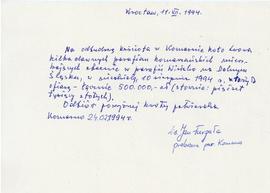 Wrocław, 11.VII. 1994.
Na odbudowę kościoła w Komarnie koło Lwowa
kilku dawnych parafian komarnańskich miesz-
kających obecnie w parafii na Dolnym
Śląsku, w niedzielę, 10 1994 r. złożyli
ofiarę - łącznie 500.000,- zł (słownie: pięćset
tysięcy złotych).
Odbiór powyższej kwoty potwierdza
Komarno 24.07.1994 r.
Ks. Jan
proboszcz par. Komarno